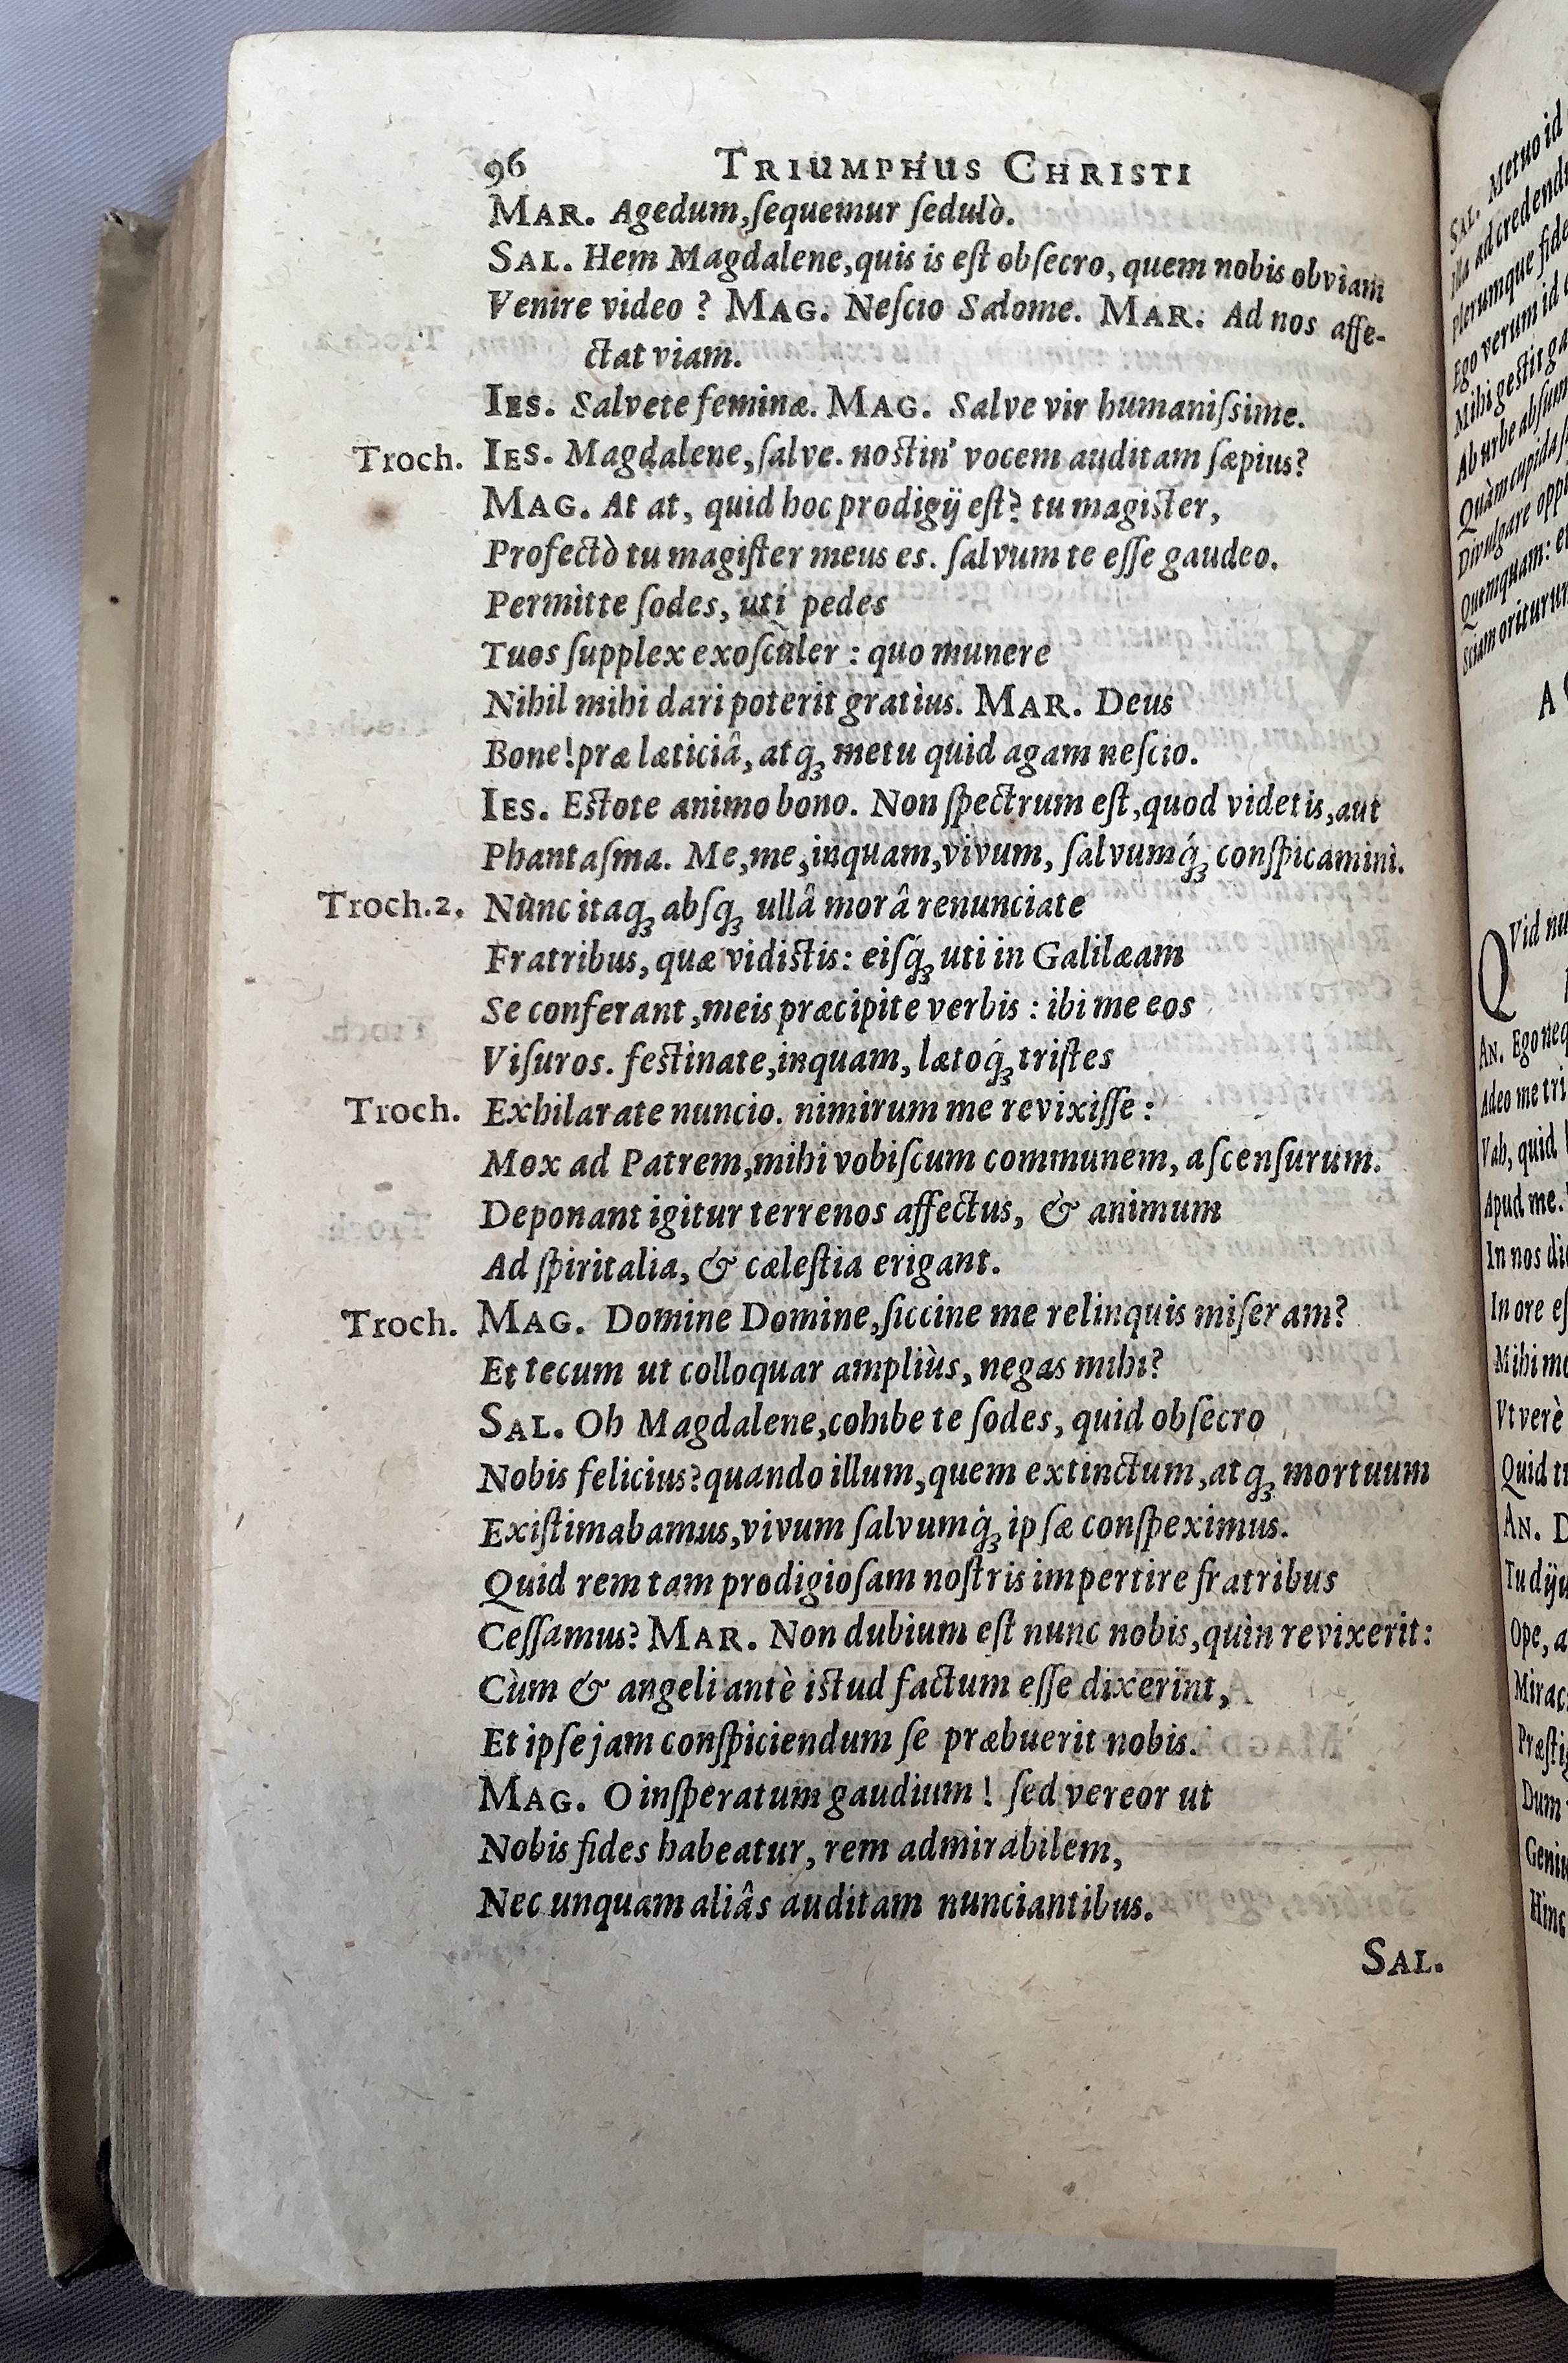 96 TRIUMPHUS CHRISTI
MAR. Agedum, ſequemur ſedulò.
SAL. Hem Magdalene, quis is eſt obſecro, quem nobis obviam
Venire video ? MAG. Neſcio Salome. MAR. Ad nos affe-
ctat viam.
IES. Salvete feminæ. MAG. Salve vir humaniſsime.
Troch. IES. Magdalene, ſalve. noſtin' vocem auditam ſæpius?
MAG. At at, quid hoc prodigij eſt? tu magiſter,
Profectò tu magiſter meus es. ſalvum te eſſe gaudeo.
Permitte ſodes, uti pedes
Tuos ſupplex exoſculer : quo munere
Nihil mihi dari poterit gratius. MAR. Deus
Bone! præ læticiâ, atq; metu quid agam neſcio.
IES. Eſtote animo bono. Non ſpectrum eſt, quod videtis, aut
Phantaſma. Me, me, inquam, vivum, ſalvumq́; conſpicamini.
Troch.2. Nunc itaq; abſq; ullâ morâ renunciate
Fratribus, quæ vidiſtis: eiſq́; uti in Galilæam
Se conferant, meis præcipite verbis : ibi me eos
Viſuros. feſtinate, inquam, lætoq́; triſtes
Troch. Exhilarate nuncio. nimirum me revixiſſe :
Mox ad Patrem, mihi vobiſcum communem, aſcenſurum.
Deponant igitur terrenos affectus, & animum
Ad ſpiritalia, & cæleſtia erigant.
Troch. MAG. Domine Domine, ſiccine me relinquis miſeram?
Et tecum ut colloquar ampliùs, negas mihi?
SAL. Oh Magdalene, cohibe te ſodes, quid obſecro
Nobis felicius? quando illum, quem extinctum, atq; mortuum
Exiſtimabamus, vivum ſalvumq́; ipſæ conſpeximus.
Quid rem tam prodigioſam noſtris impertire fratribus
Ceſſamus? MAR. Non dubium eſt nunc nobis, quin revixerit:
Cùm & angeli antè iſtud factum eſſe dixerint,
Et ipſe jam conſpiciendum ſe præbuerit nobis.
MAG. O inſperatum gaudium ! ſed vereor ut
Nobis fides habeatur, rem admirabilem,
Nec unquam aliâs auditam nunciantibus.
SAL.